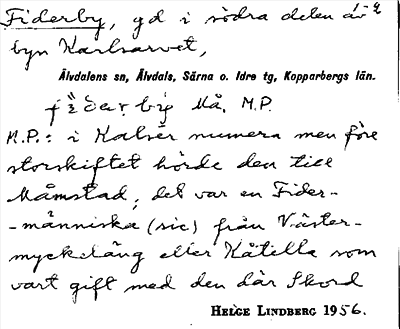 Fiderby, gd i södra delen av
byn Karlsarvet,
Älvdalens sn, Älvdals, Särna o. Idre tg, Kopparbergs län.
Må, M.P.
M.P.: i numera men före
storskiftet hörde den till
Måmstad; det var en Fider-
-människa (sic) från Väster-
myckeläng eller Kåtilla som
vart gift med den där Skord
HELGE LINDBERG 1956.